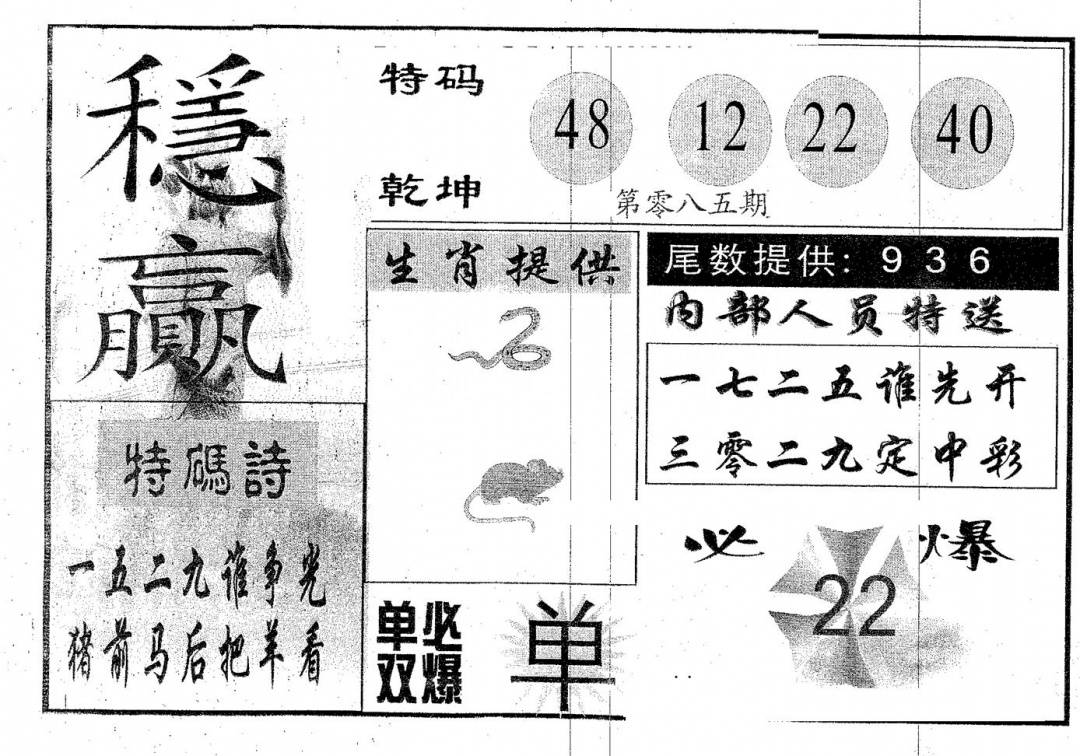 穩贏
特码
乾坤
48 12 22 40
第零八五期
特碼詩
一五二九谁争光
猪前马后把羊看
生肖提供
单双
必爆
单
尾数提供: 9 3 6
内部人员特送
一七二五谁先开
三零二九定中彩
必爆
22